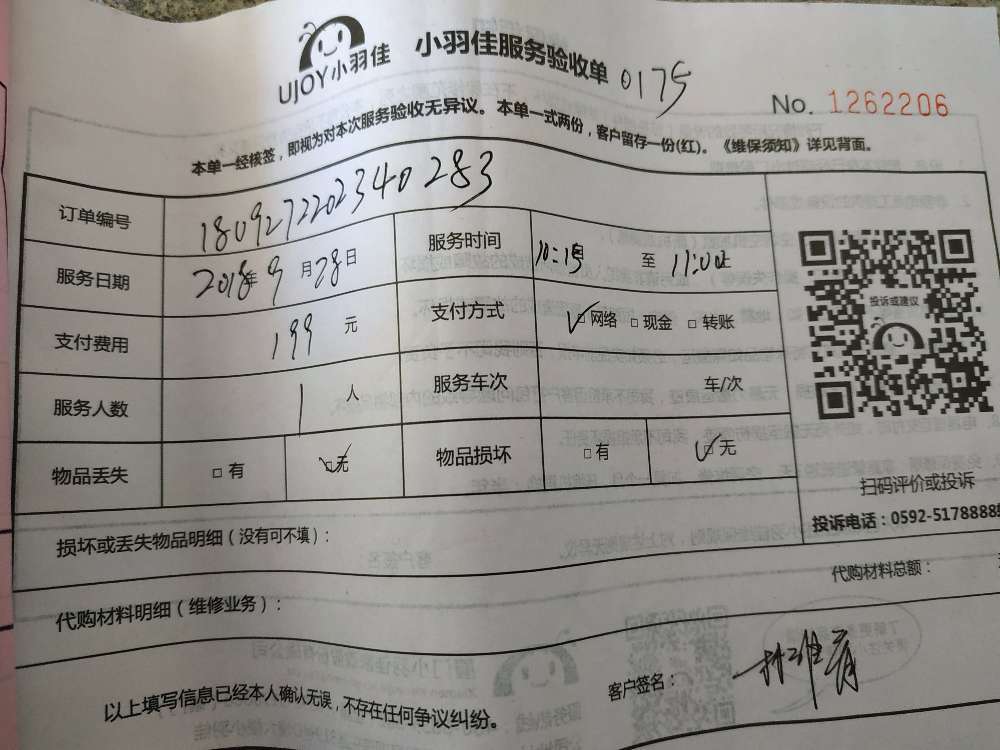 UJOY小羽佳 小羽佳服务验收单 0175
No. 1262206
本单一经核签，即视为对本次服务验收无异议。本单一式两份，客户留存一份(红)。《维保须知》详见背面。
订单编号 1809272202340283
服务日期 2018年9月28日 服务时间 10:15 至 11:00止
支付费用 199 元 支付方式 ☑网络 □现金 □转账
服务人数 1 人 服务车次 车/次
物品丢失 □有 ☑无 物品损坏 □有 ☑无
投诉或建议
扫码评价或投诉
投诉电话：0592-5178888
损坏或丢失物品明细（没有可不填）：
代购材料明细（维修业务）： 代购材料总额：
以上填写信息已经本人确认无误，不存在任何争议纠纷。 客户签名：